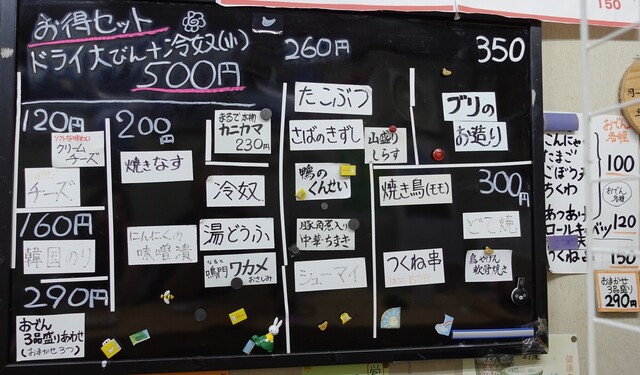 お得セット
ドライ大びん+冷奴(小)
500円
260円
350
150
120円
ソフトな味わい
クリーム
チーズ
チーズ
160円
韓国のり
290円
おでん
3品盛りあわせ
(おまかせ3つ)
200円
まるで本物
カニカマ
230円
焼きなす
冷奴
にんにくの
味噌漬
湯どうふ
なると
鳴門ワカメ
おさしみ
たこぶつ
さばのきずし
山盛り
しらす
鴨の
くんせい
豚角煮入り
中華ちまき
シューマイ
ブリの
お造り
300円
焼き鳥(モモ)
どて焼
つくね串
鳥やげん
軟骨焼き
こんにゃ
たまご
ごぼう天
ちくわ
あつあ
ロールキ
つくね
おでん
各種
100
120
ベツ
おまかせ
3品盛り
290円